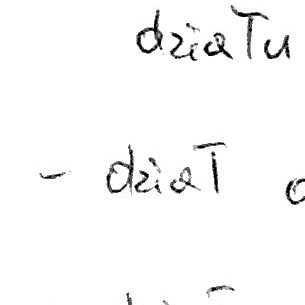 działu
- dział